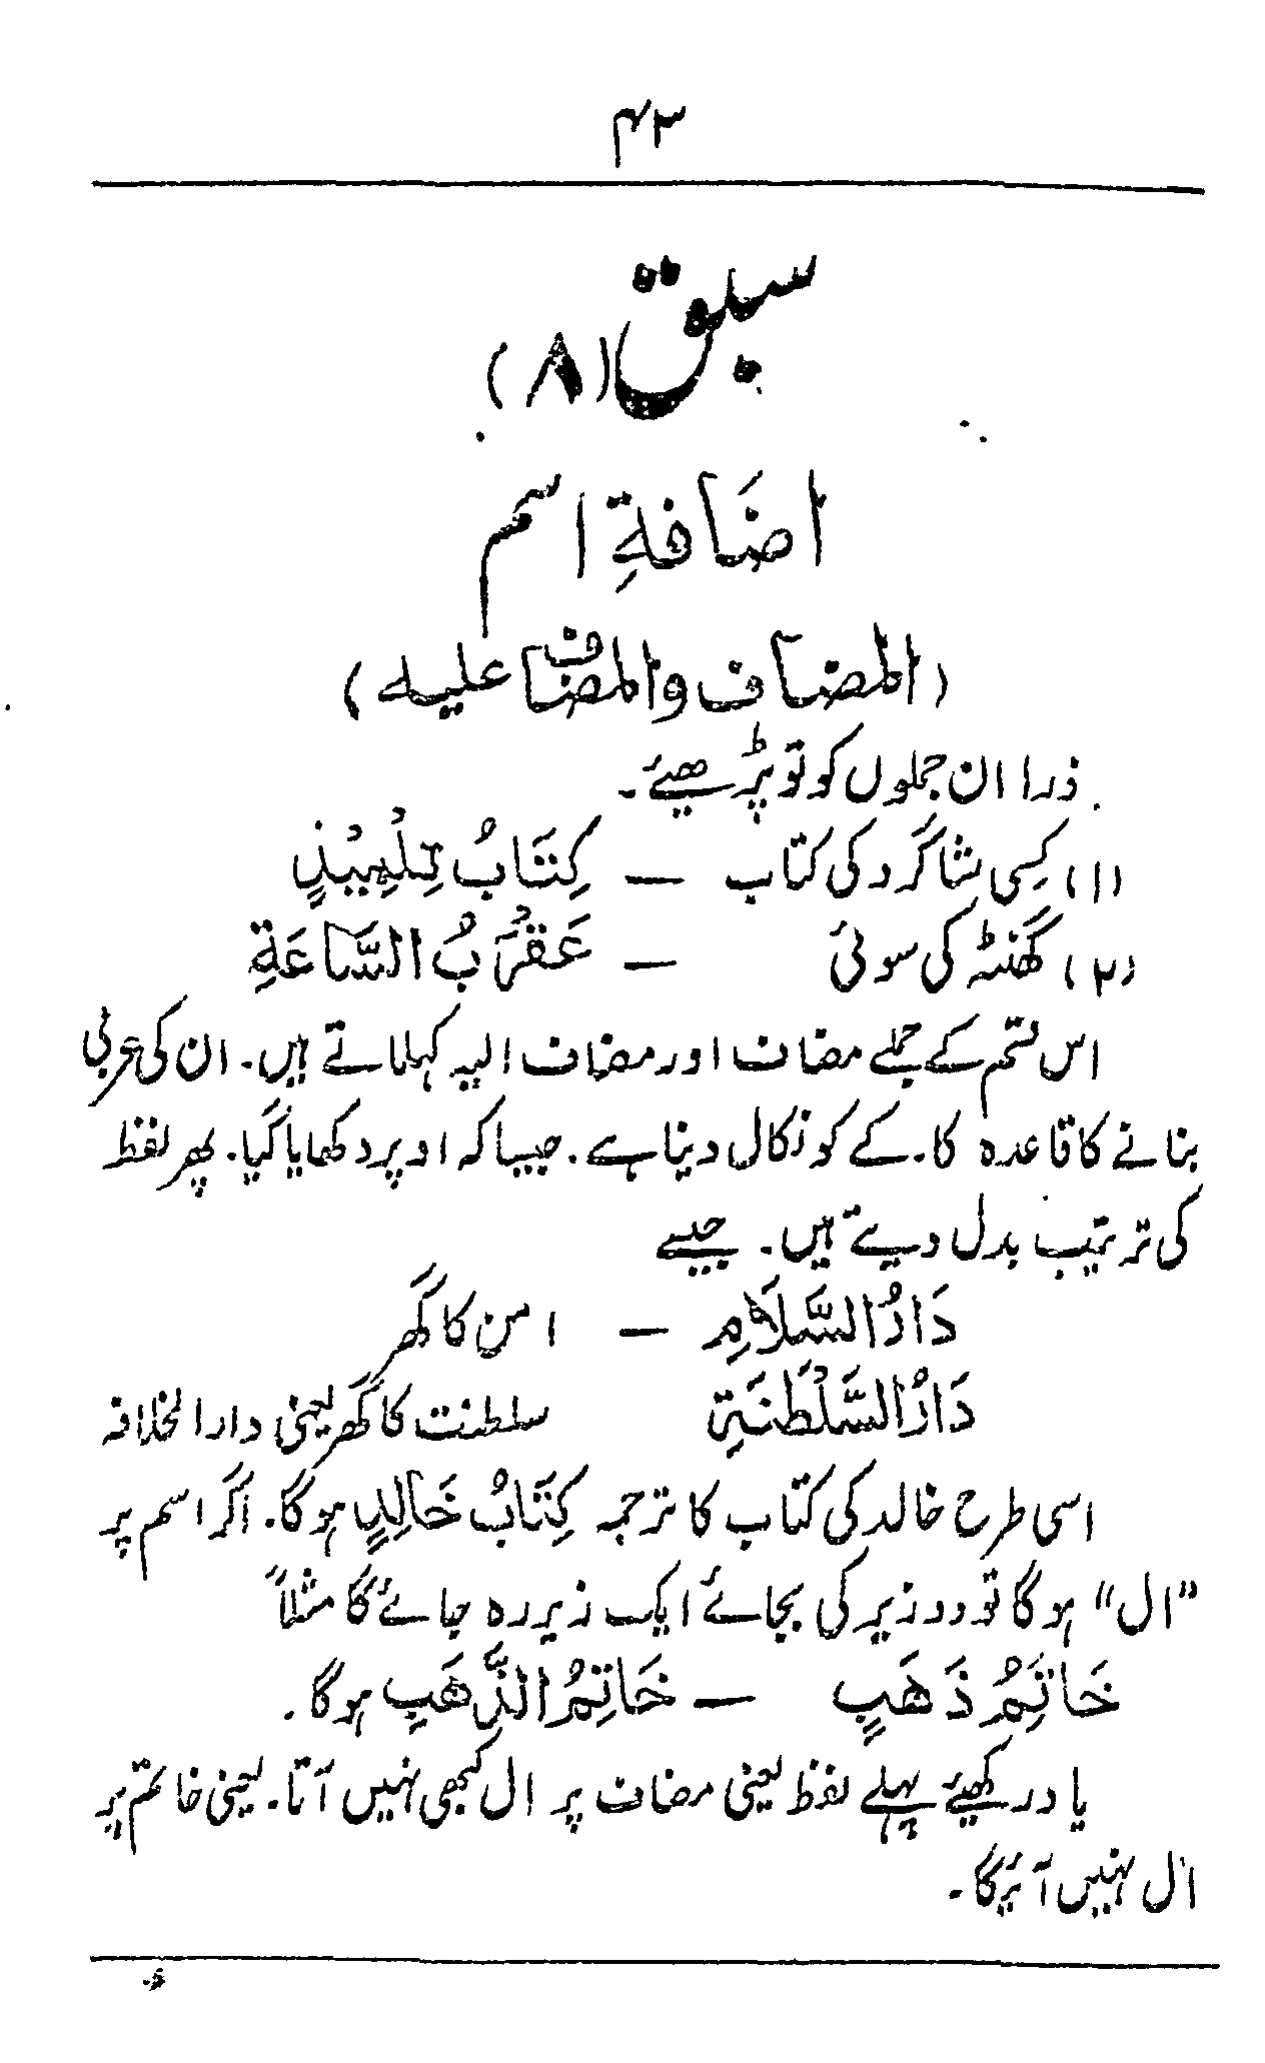 ۴۳
سبق (۸)
اضَافۃِ اسم
(المضاف والمضاف علیہ)
ذرا ان جملوں کو تو پڑھیئے۔
(۱) کِسی شاگرد کی کتاب — کِتَابُ تِلْمِیْذٍ
(۲) گھنٹہ کی سوئی — عَقْرَبُ السَّاعَةِ
اس قسم کے جملے مضاف اور مضاف الیہ کہلاتے ہیں۔ ان کی عربی
بنانے کا قاعدہ کا۔ کے کو نکال دینا ہے۔ جیسا کہ اوپر دکھایا گیا۔ پھر لفظ
کی ترتیب بدل دیتے ہیں۔ جیسے
دَارُ السَّلَامِ — امن کا گھر
دَارُ السَّلْطَنَةِ سلطنت کا گھر یعنی دارالخلافہ
اسی طرح خالد کی کتاب کا ترجمہ کِتَابُ خَالِدٍ ہوگا۔ اگر اسم پر
"ال" ہوگا تو دو زیر کی بجائے ایک زیر رہ جائے گا مثلاً
خَاتِمُ ذَهَبٍ — خَاتِمُ الذَّهَبِ ہوگا۔
یاد رکھیئے پہلے لفظ یعنی مضاف پر ال کبھی نہیں آتا۔ یعنی خاتم پر
ال نہیں آئیگا۔